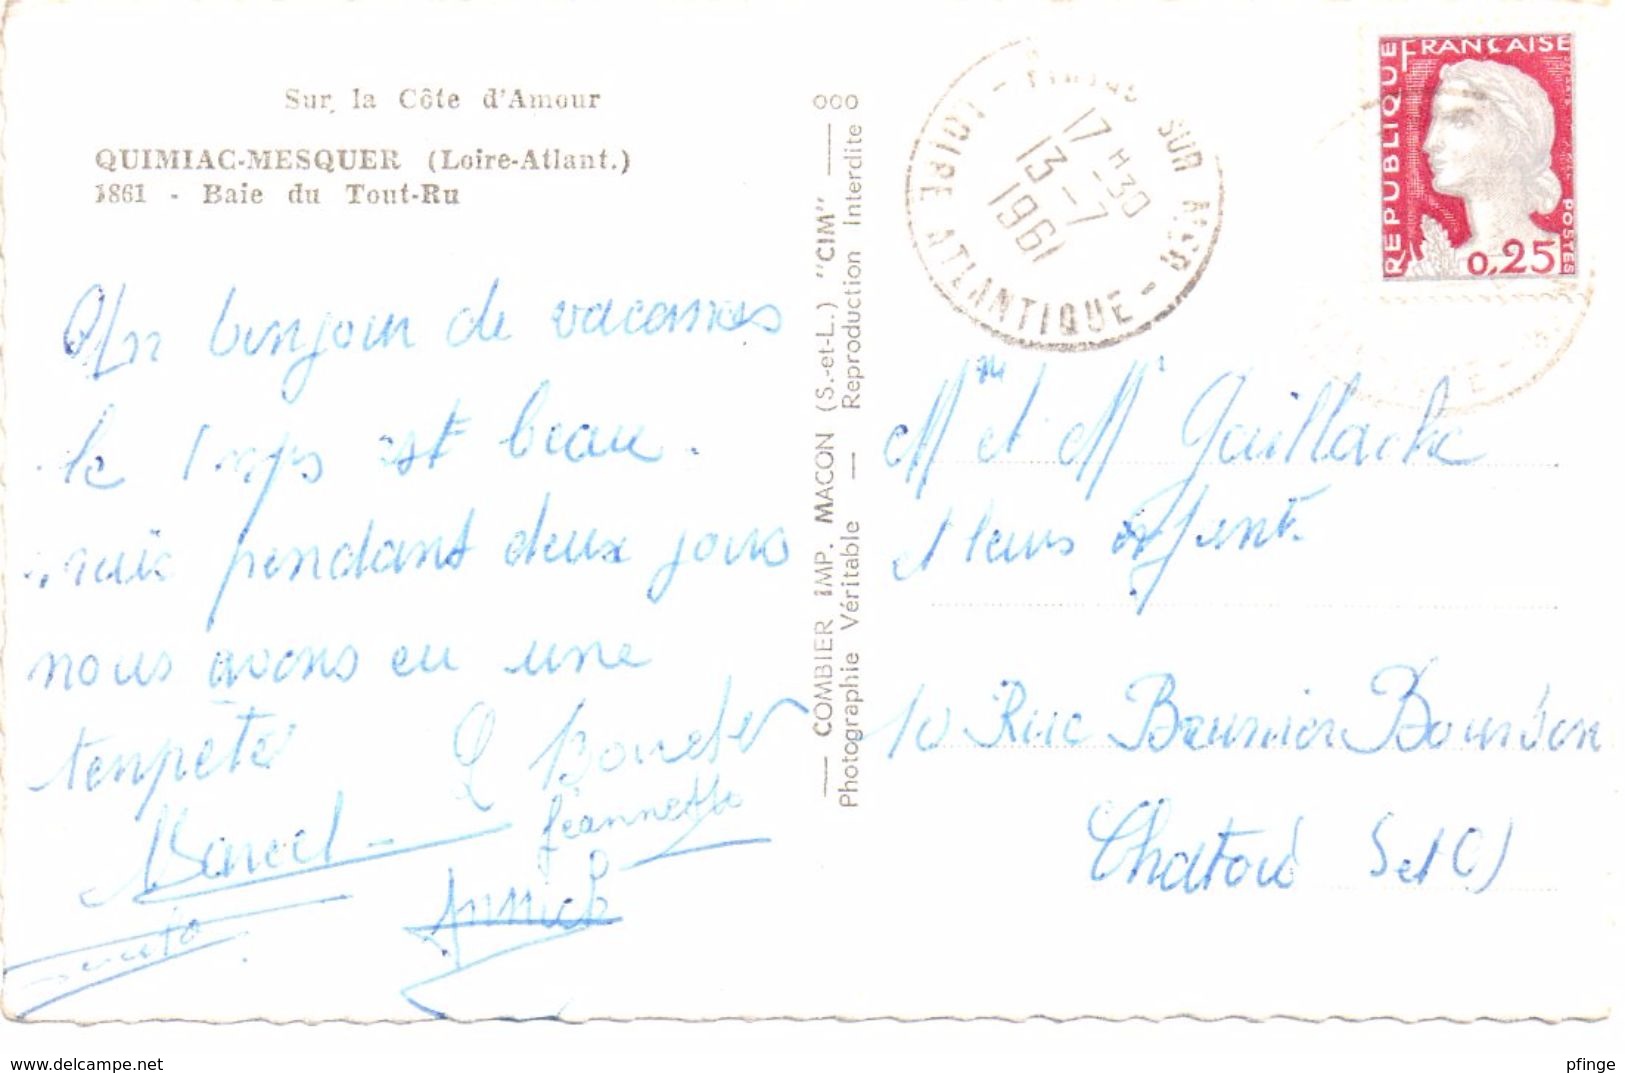 Sur la Côte d'Amour
QUIMIAC-MESQUER (Loire-Atlant.)
1861 - Baie du Tout-Ru
Un bonjour de vacances
le temps est beau.
mais pendant deux jours
nous avons eu une
tempête
Boucher
Marcel
Jeannette
Annick
COMBIER IMP. MACON (S.-et-L.) "CIM"
Photographie Véritable — Reproduction Interdite
000
SUR MER
LOIRE ATLANTIQUE
17 H 30
13 - 7
1961
REPUBLIQUE FRANÇAISE
POSTES
0,25
Mm et Mr Gaillache
et leurs enfants
10 Rue Beunier Bourbon
Chatou S et O)
www.delcampe.net
pfinge